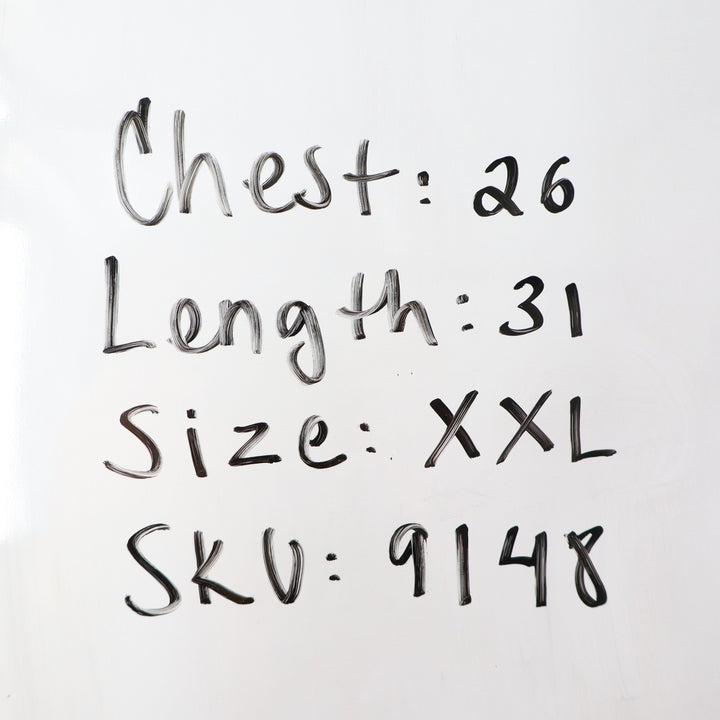 Chest: 26
Length: 31
Size: XXL
SKU: 9148